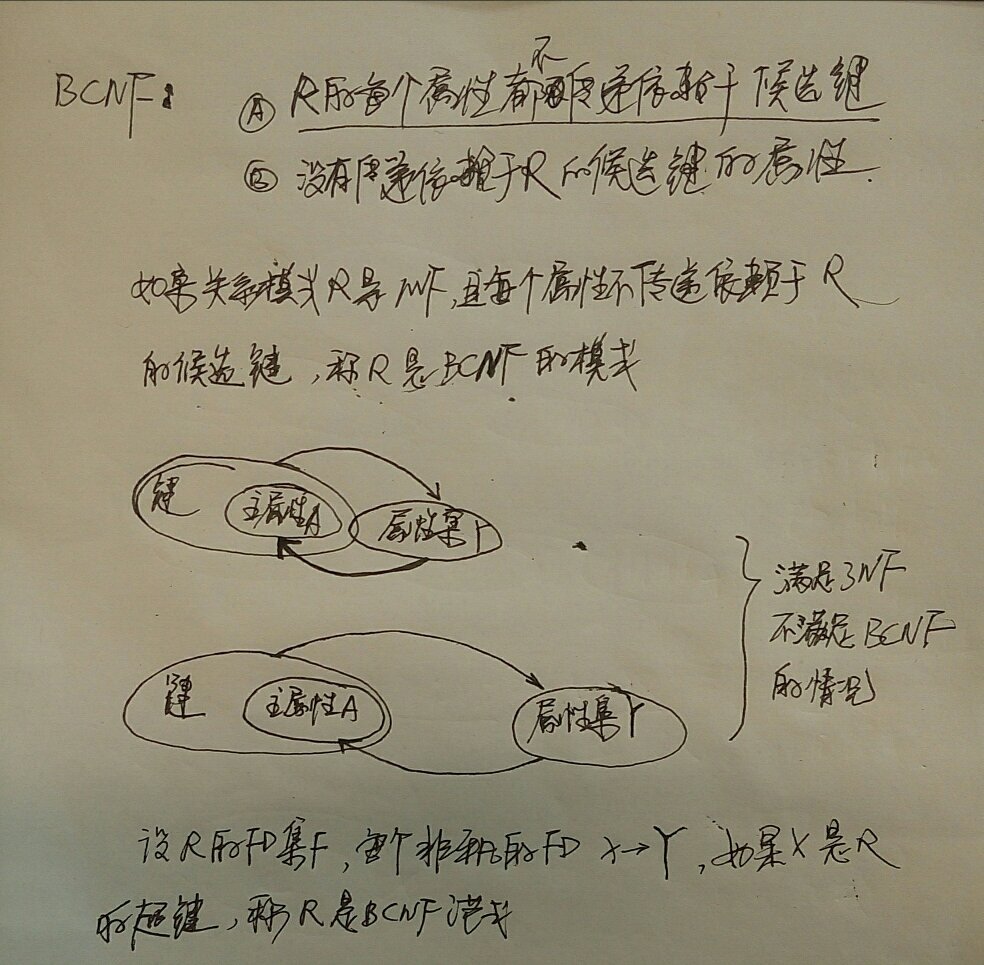 BCNF:
Ⓐ R的每个属性都不传递依赖于候选键
Ⓑ 没有传递依赖于R的候选键的属性.
如果关系模式R是1NF,且每个属性不传递依赖于R
的候选键,称R是BCNF的模式
键 主属性A 属性集Y
满足3NF
不满足BCNF
的情况
键 主属性A 属性集Y
设R的FD集F,每个非平凡的FD X→Y,如果X是R
的超键,称R是BCNF模式